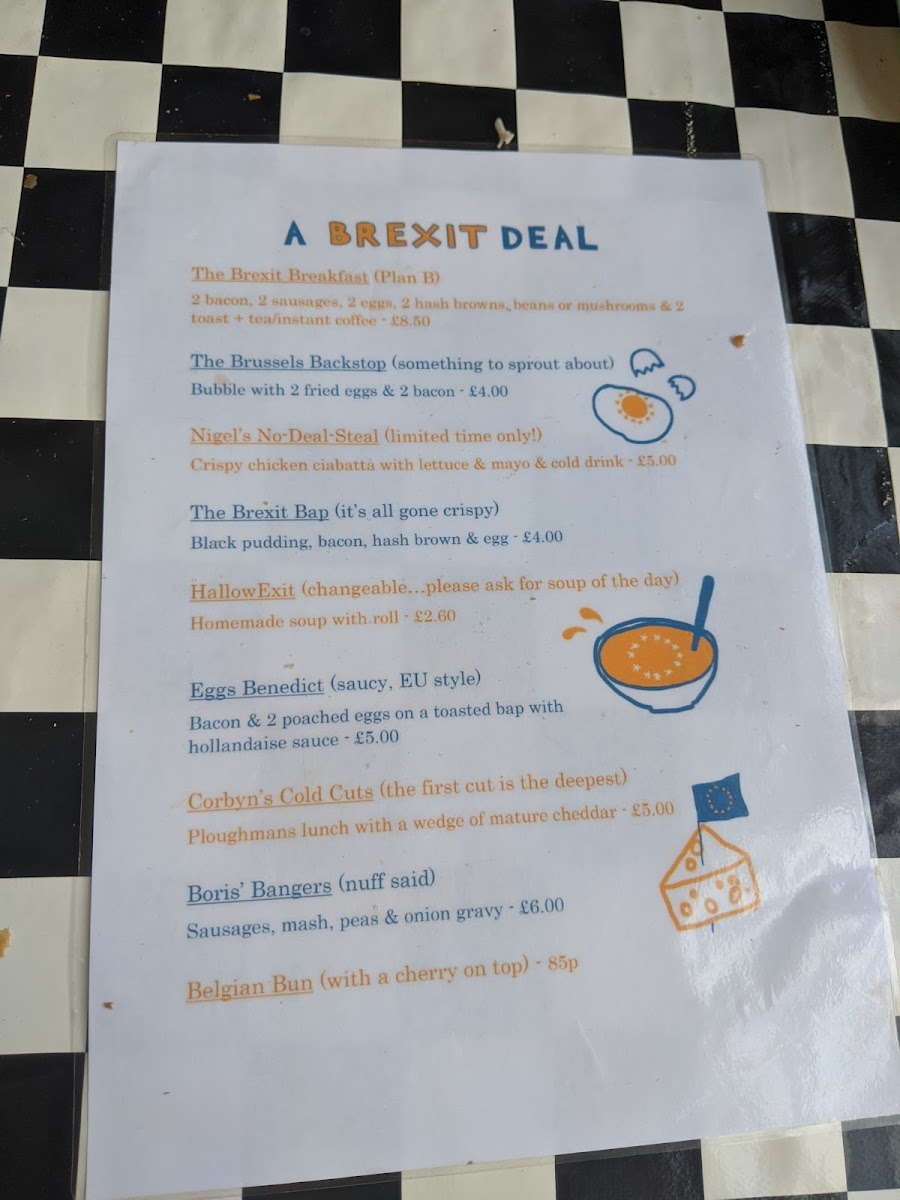 A BREXIT DEAL
The Brexit Breakfast (Plan B)
2 bacon, 2 sausages, 2 eggs, 2 hash browns, beans or mushrooms & 2
toast + tea/instant coffee - £8.50
The Brussels Backstop (something to sprout about)
Bubble with 2 fried eggs & 2 bacon - £4.00
Nigel's No-Deal-Steal (limited time only!)
Crispy chicken ciabatta with lettuce & mayo & cold drink - £5.00
The Brexit Bap (it's all gone crispy)
Black pudding, bacon, hash brown & egg - £4.00
HallowExit (changeable...please ask for soup of the day)
Homemade soup with roll - £2.60
Eggs Benedict (saucy, EU style)
Bacon & 2 poached eggs on a toasted bap with
hollandaise sauce - £5.00
Corbyn's Cold Cuts (the first cut is the deepest)
Ploughmans lunch with a wedge of mature cheddar - £5.00
Boris' Bangers (nuff said)
Sausages, mash, peas & onion gravy - £6.00
Belgian Bun (with a cherry on top) - 85p